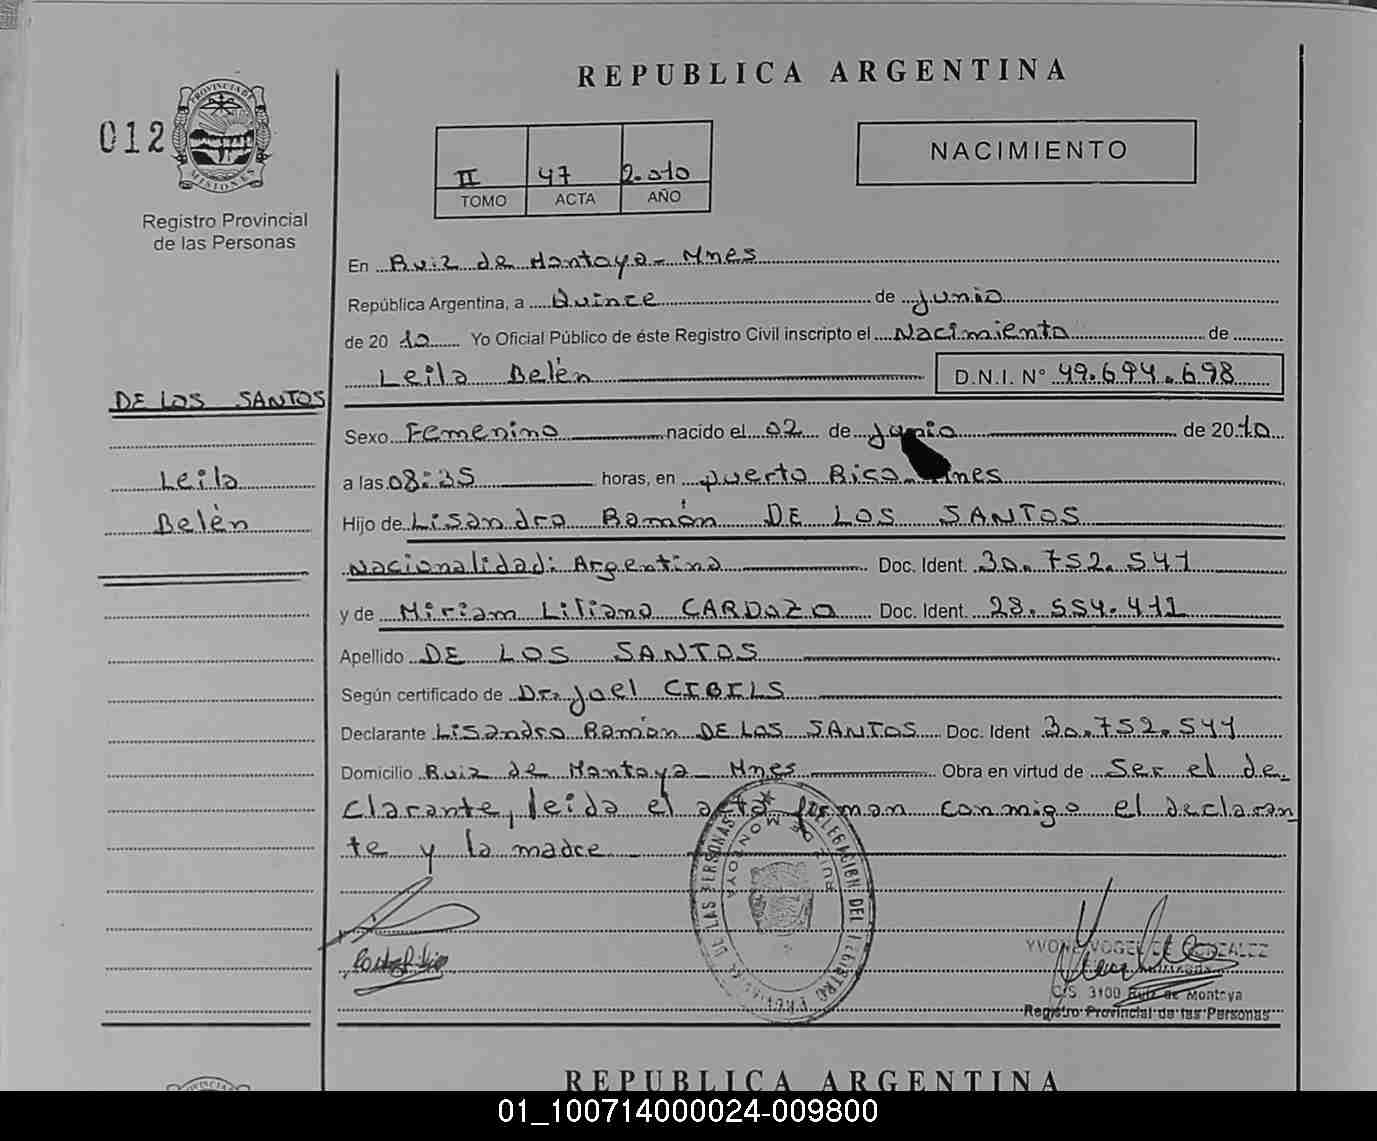 REPUBLICA ARGENTINA
012
PROVINCIA DE
MISIONES
Registro Provincial
de las Personas
II 47 2.010
TOMO ACTA AÑO
NACIMIENTO
En Ruiz de Montoya - Mnes
República Argentina, a Quince de junio
de 20 10 Yo Oficial Público de éste Registro Civil inscripto el Nacimiento de
Leila Belén D.N.I. N° 49.694.698
DE LOS SANTOS
Leila
Belén
Sexo Femenino nacido el 02 de junio de 20 10
a las 08:35 horas, en puerto Rico
Hijo de Lisandro Ramón DE LOS SANTOS
Nacionalidad: Argentina Doc. Ident. 30.752.541
y de Miriam Liliana CARDOZO Doc. Ident. 28.554.411
Apellido DE LOS SANTOS
Según certificado de Dr. Joel CIBILS
Declarante Lisandro Ramón DE LOS SANTOS Doc. Ident 30.752.541
Domicilio Ruiz de Montoya - Mnes Obra en virtud de Ser el de-
clarante, leida el acta firman conmigo el declaran-
te y la madre
DELEGACION DEL REGISTRO PROVINCIAL DE LAS PERSONAS
RUIZ DE MONTOYA
C/S 3100 Ruiz de Montoya
Registro Provincial de las Personas
PROVINCIA
REPUBLICA ARGENTINA
01_100714000024-009800